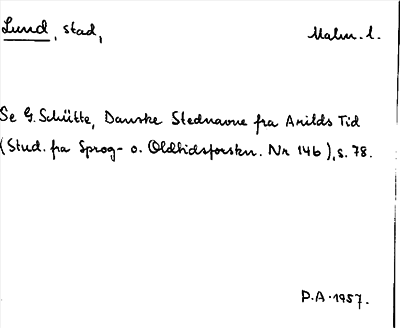 Lund, stad,
Malm. l.
Se G. Schütte, Danske Stednavne fra Arilds Tid
(Stud. fra Sprog- o. Oldtidsforskn. Nr 146), s. 78.
P.A. 1957.